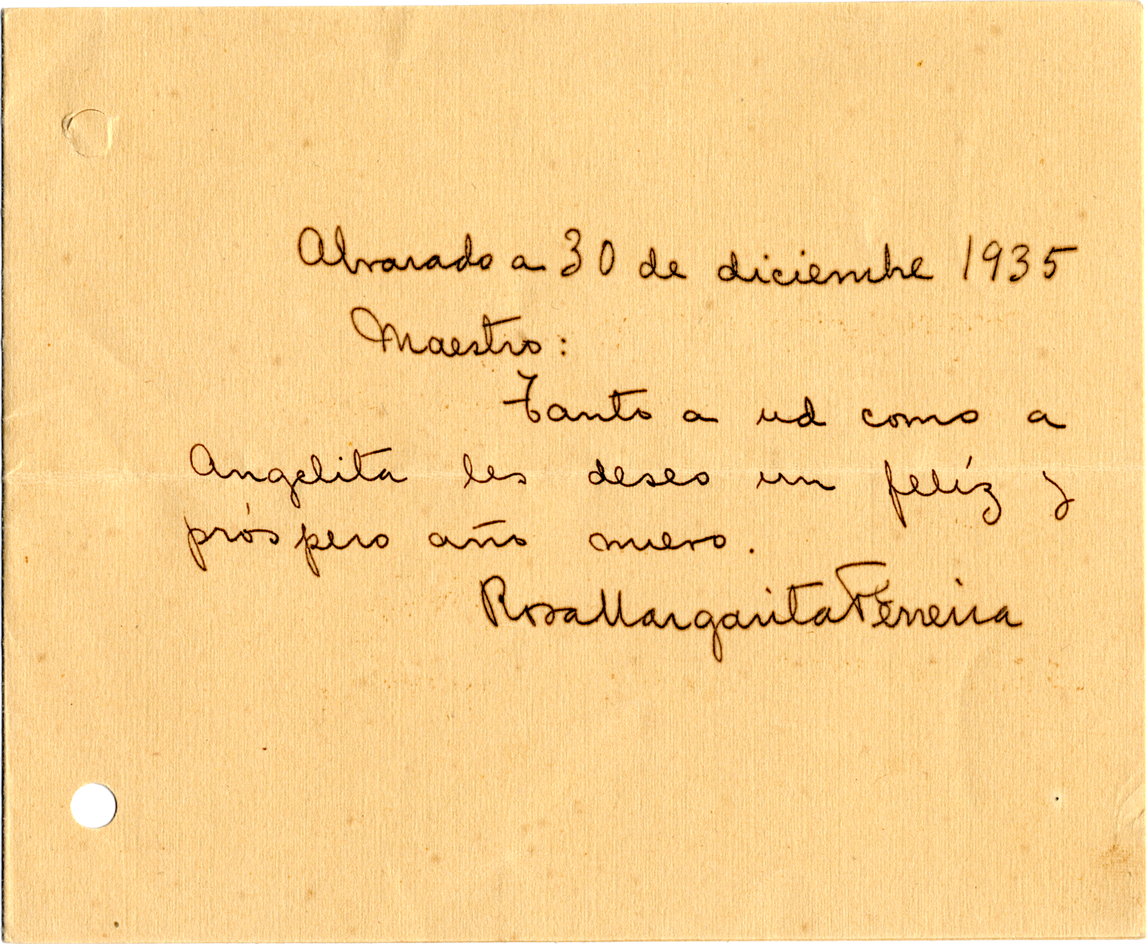 Alvarado a 30 de diciembre 1935
Maestro:
Tanto a ud como a
Angelita les deseo un felíz y
próspero año nuevo.
Rosa Margarita Ferreira